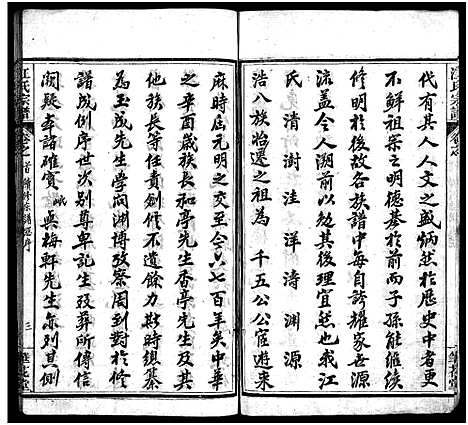 代有其人人文之盛炳然於歷史中者更
不鮮祖業之明德基於前而子孫能繼續
修明於後故各族譜中每自誇耀家世源
流蓋令人溯前以考其後理宜然也我江
氏清澍洼洋濤淵源
浩八族始遷之祖為 千五公公宦遊來
麻時届元明之交至今六七百年矣中華
之辛酉歲族長和亭先生香亭先生及其
他族長等任責創修不遺餘力斯時總纂
為玉成先生學問淵博攷察周到於修
譜成例序世次別尊卑記生歿葬所傳信
闕疑率諸確實 與梅軒先生亦列其側
江氏宗譜
卷之首
三